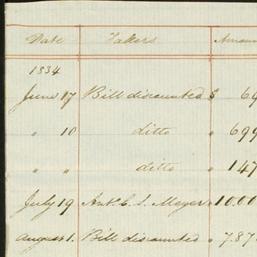 Date Takers Amoun
1834
June 17 Bill discounted $ 69
" 10 ditto " 699
" " ditto " 147
July 19 Ant. C. L. Meyer " 10.00
August 1. Bill discounted " 7.87